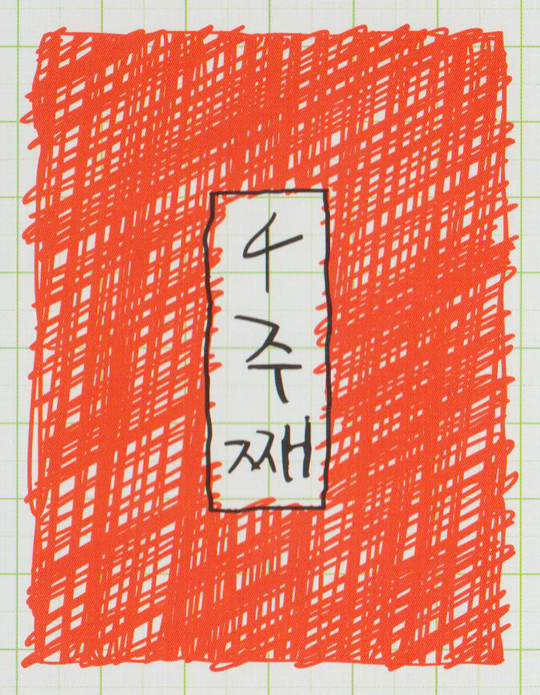 4
주
째